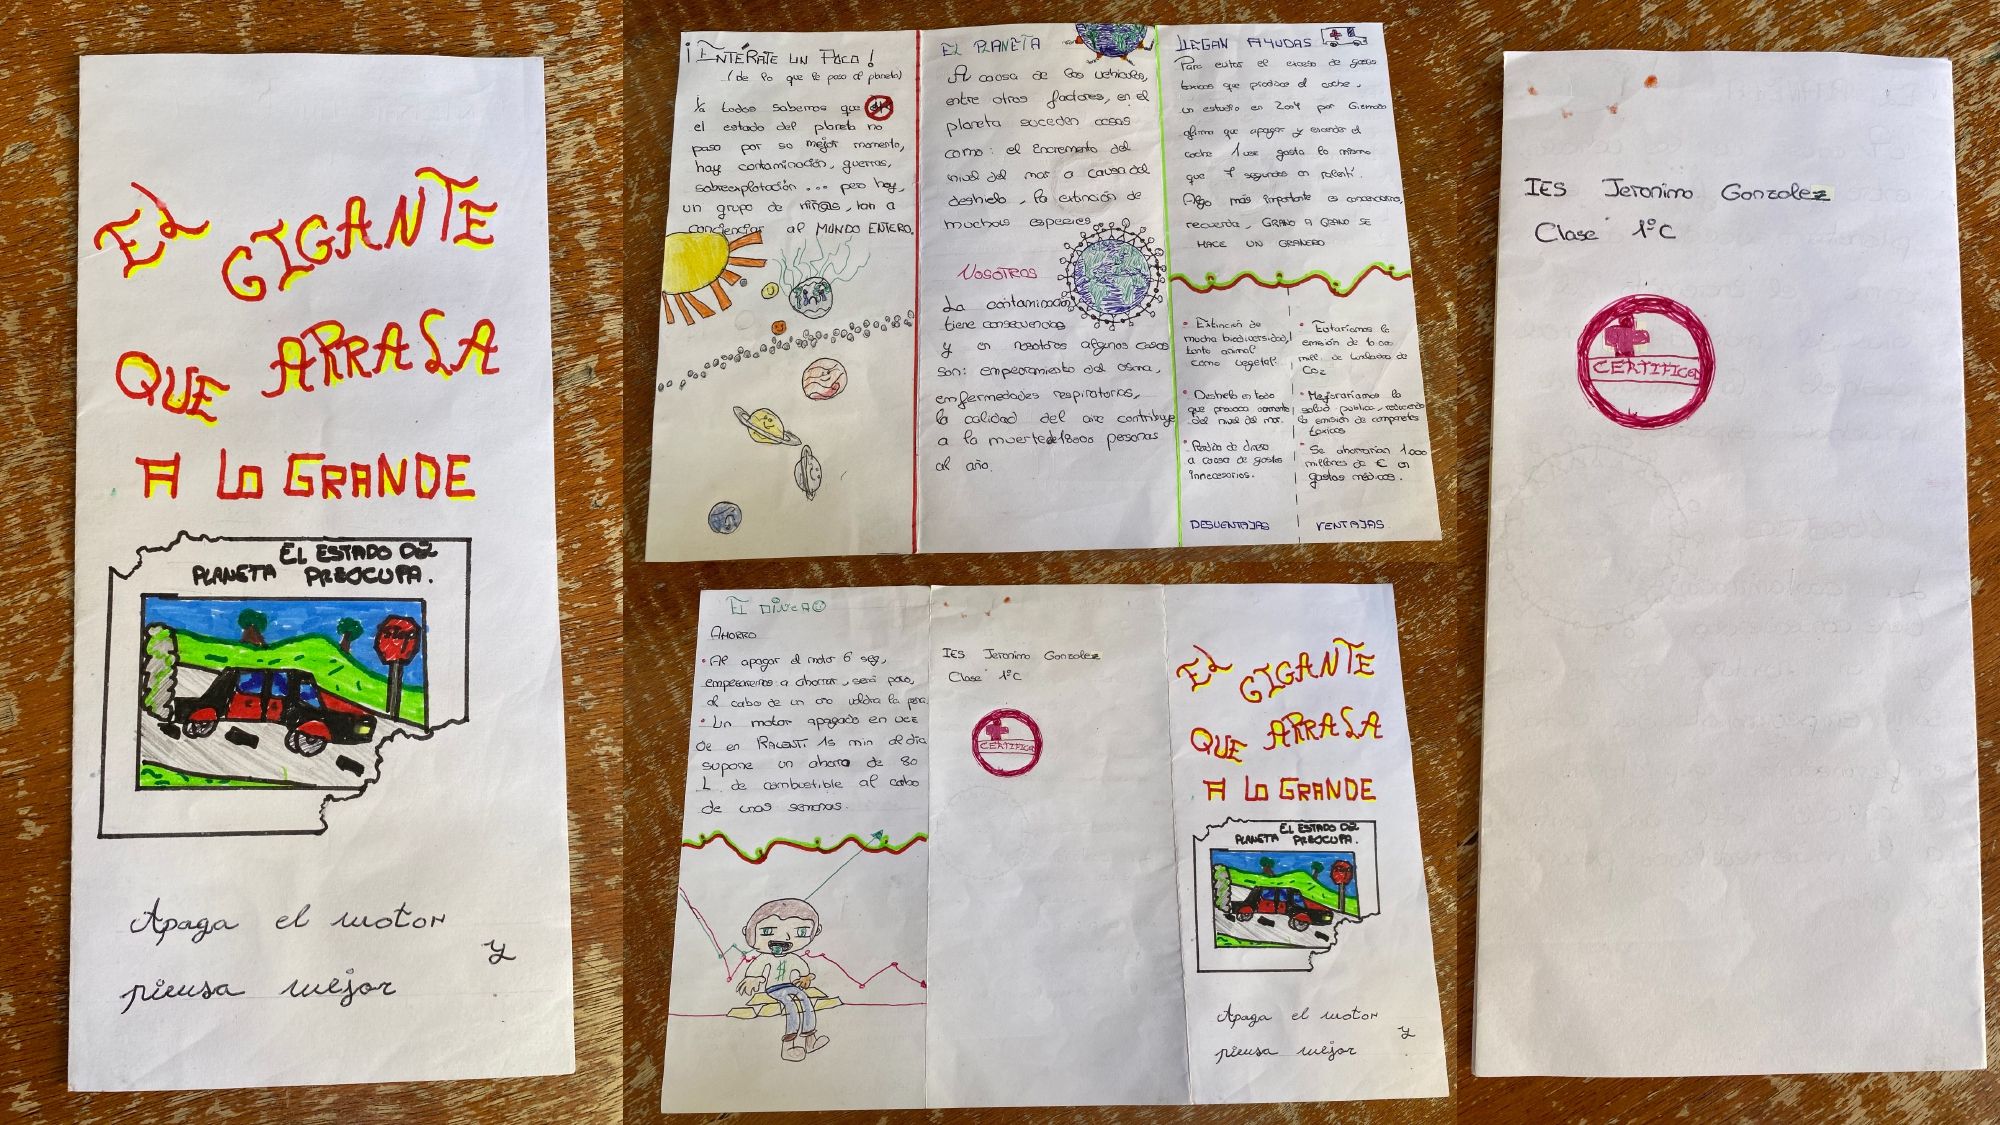 EL GIGANTE
QUE ARRASA
A LO GRANDE
EL ESTADO DEL
PLANETA PREOCUPA.
STOP
Apaga el motor
y
piensa mejor
¡ENTÉRATE UN POCO!
(de lo que le pasa al planeta)
Ya todos sabemos que
el estado del planeta no
pasa por su mejor momento,
hay contaminación, guerras,
sobreexplotación ... pero hoy,
un grupo de niñas, van a
concienciar al MUNDO ENTERO.
EL PLANETA
A causa de los vehículos,
entre otros factores, en el
planeta suceden cosas
como: el incremento del
nivel del mar a causa del
deshielo, la extinción de
muchas especies
NOSOTROS
La contaminación
tiene consecuencias
y en nosotros algunos casos
son: empeoramiento del asma,
enfermedades respiratorias,
la calidad del aire contribuye
a la muerte de 1800 personas
al año.
LLEGAN AYUDAS
Para evitar el exceso de gases
toxicos que produce el coche,
un estudio en 2004 por
afirma que apagar y encender el
coche 1 vez gasta lo mismo
que 7 segundos en ralentí.
Algo más importante es concienciarnos,
recuerda, GRANO A GRANO SE
HACE UN GRANERO
• Extinción de
mucha biodiversidad,
tanto animal
como vegetal.
• Deshielo en todo
que provoca aumento
del nivel del mar.
• Perdida de dinero
a causa de gastos
innecesarios.
DESVENTAJAS
• Evitaríamos la
emisión de 10.000
mill. de toneladas de
CO2
• Mejoraríamos la
salud pública, reduciendo
la emisión de componentes
toxicos
• Se ahorrarían 1.000
millones de € en
gastos médicos.
VENTAJAS
EL DINERO
AHORRO
• Al apagar el motor 6 seg,
empezaremos a ahorrar, será poco,
al cabo de un año valdra la pena
• Un motor apagado en vez
de en RALENTI 15 min al día
supone un ahorro de 80
L de combustible al cabo
de unas semanas.
$
IES Jeronimo Gonzalez
Clase 1ºC
CERTIFICED
EL GIGANTE
QUE ARRASA
A LO GRANDE
EL ESTADO DEL
PLANETA PREOCUPA.
STOP
Apaga el motor
y
piensa mejor
IES Jeronimo Gonzalez
Clase 1ºC
CERTIFICED